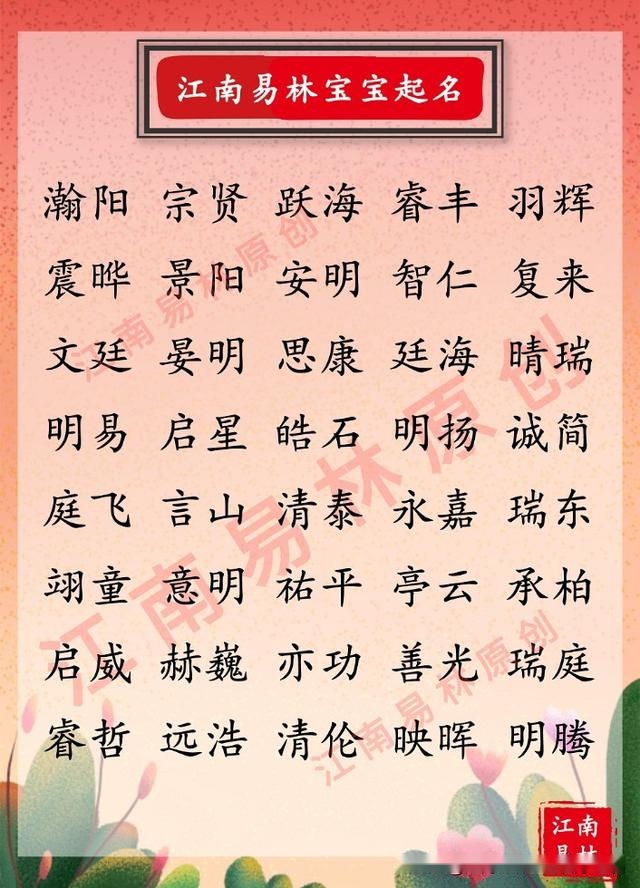 江南易林宝宝起名
瀚阳 宗贤 跃海 睿丰 羽辉
震晔 景阳 安明 智仁 复来
文廷 晏明 思康 廷海 晴瑞
明易 启星 皓石 明扬 诚简
庭飞 言山 清泰 永嘉 瑞东
翊童 意明 祐平 亭云 承柏
启威 赫巍 亦功 善光 瑞庭
睿哲 远浩 清伦 映晖 明腾
江南易林原创
江南易林原创
江南易林原创
江南
易林